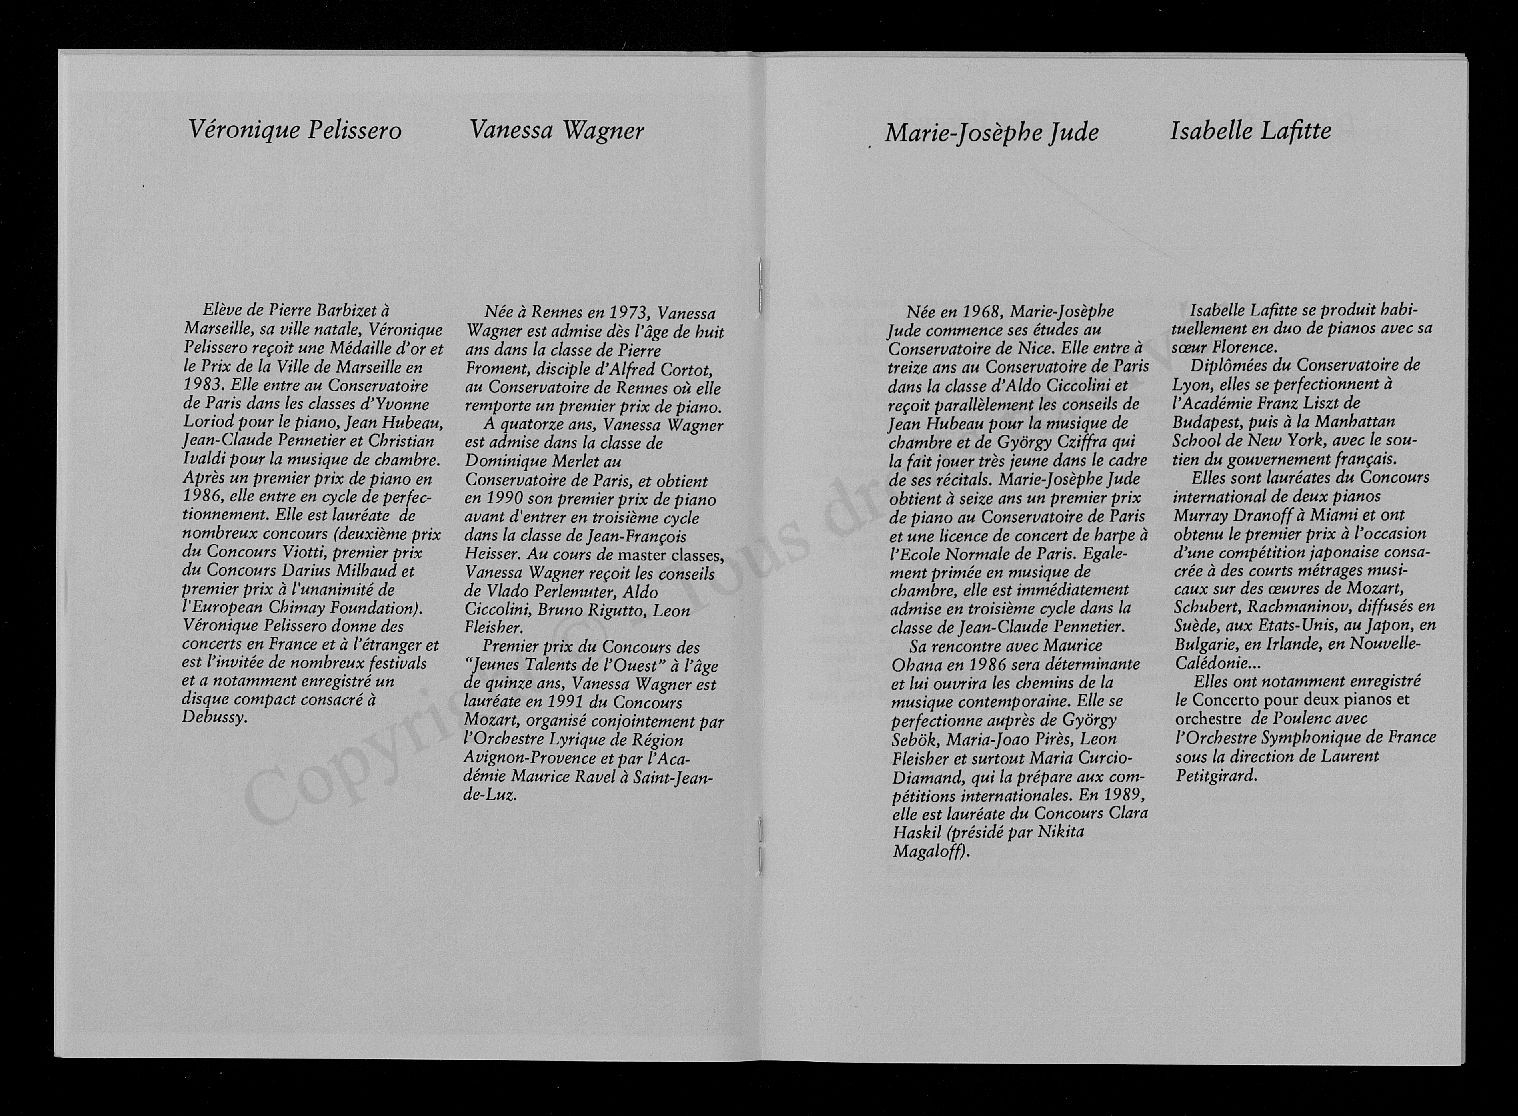 Véronique Pelissero
Elève de Pierre Barbizet à
Marseille, sa ville natale, Véronique
Pelissero reçoit une Médaille d'or et
le Prix de la Ville de Marseille en
1983. Elle entre au Conservatoire
de Paris dans les classes d'Yvonne
Loriod pour le piano, Jean Hubeau,
Jean-Claude Pennetier et Christian
Ivaldi pour la musique de chambre.
Après un premier prix de piano en
1986, elle entre en cycle de perfec-
tionnement. Elle est lauréate de
nombreux concours (deuxième prix
du Concours Viotti, premier prix
du Concours Darius Milhaud et
premier prix à l'unanimité de
l'European Chimay Foundation).
Véronique Pelissero donne des
concerts en France et à l'étranger et
est l'invitée de nombreux festivals
et a notamment enregistré un
disque compact consacré à
Debussy.
Vanessa Wagner
Née à Rennes en 1973, Vanessa
Wagner est admise dès l'âge de huit
ans dans la classe de Pierre
Froment, disciple d'Alfred Cortot,
au Conservatoire de Rennes où elle
remporte un premier prix de piano.
A quatorze ans, Vanessa Wagner
est admise dans la classe de
Dominique Merlet au
Conservatoire de Paris, et obtient
en 1990 son premier prix de piano
avant d'entrer en troisième cycle
dans la classe de Jean-François
Heisser. Au cours de master classes,
Vanessa Wagner reçoit les conseils
de Vlado Perlemuter, Aldo
Ciccolini, Bruno Rigutto, Leon
Fleisher.
Premier prix du Concours des
"Jeunes Talents de l'Ouest" à l'âge
de quinze ans, Vanessa Wagner est
lauréate en 1991 du Concours
Mozart, organisé conjointement par
l'Orchestre Lyrique de Région
Avignon-Provence et par l'Aca-
démie Maurice Ravel à Saint-Jean-
de-Luz.
Marie-Josèphe Jude
Née en 1968, Marie-Josèphe
Jude commence ses études au
Conservatoire de Nice. Elle entre à
treize ans au Conservatoire de Paris
dans la classe d'Aldo Ciccolini et
reçoit parallèlement les conseils de
Jean Hubeau pour la musique de
chambre et de György Cziffra qui
la fait jouer très jeune dans le cadre
de ses récitals. Marie-Josèphe Jude
obtient à seize ans un premier prix
de piano au Conservatoire de Paris
et une licence de concert de harpe à
l'Ecole Normale de Paris. Egale-
ment primée en musique de
chambre, elle est immédiatement
admise en troisième cycle dans la
classe de Jean-Claude Pennetier.
Sa rencontre avec Maurice
Ohana en 1986 sera déterminante
et lui ouvrira les chemins de la
musique contemporaine. Elle se
perfectionne auprès de György
Sebök, Maria-Joao Pirès, Leon
Fleisher et surtout Maria Curcio-
Diamand, qui la prépare aux com-
pétitions internationales. En 1989,
elle est lauréate du Concours Clara
Haskil (présidé par Nikita
Magaloff).
Isabelle Lafitte
Isabelle Lafitte se produit habi-
tuellement en duo de pianos avec sa
sœur Florence.
Diplômées du Conservatoire de
Lyon, elles se perfectionnent à
l'Académie Franz Liszt de
Budapest, puis à la Manhattan
School de New York, avec le sou-
tien du gouvernement français.
Elles sont lauréates du Concours
international de deux pianos
Murray Dranoff à Miami et ont
obtenu le premier prix à l'occasion
d'une compétition japonaise consa-
crée à des courts métrages musi-
caux sur des œuvres de Mozart,
Schubert, Rachmaninov, diffusés en
Suède, aux Etats-Unis, au Japon, en
Bulgarie, en Irlande, en Nouvelle-
Calédonie...
Elles ont notamment enregistré
le Concerto pour deux pianos et
orchestre de Poulenc avec
l'Orchestre Symphonique de France
sous la direction de Laurent
Petitgirard.